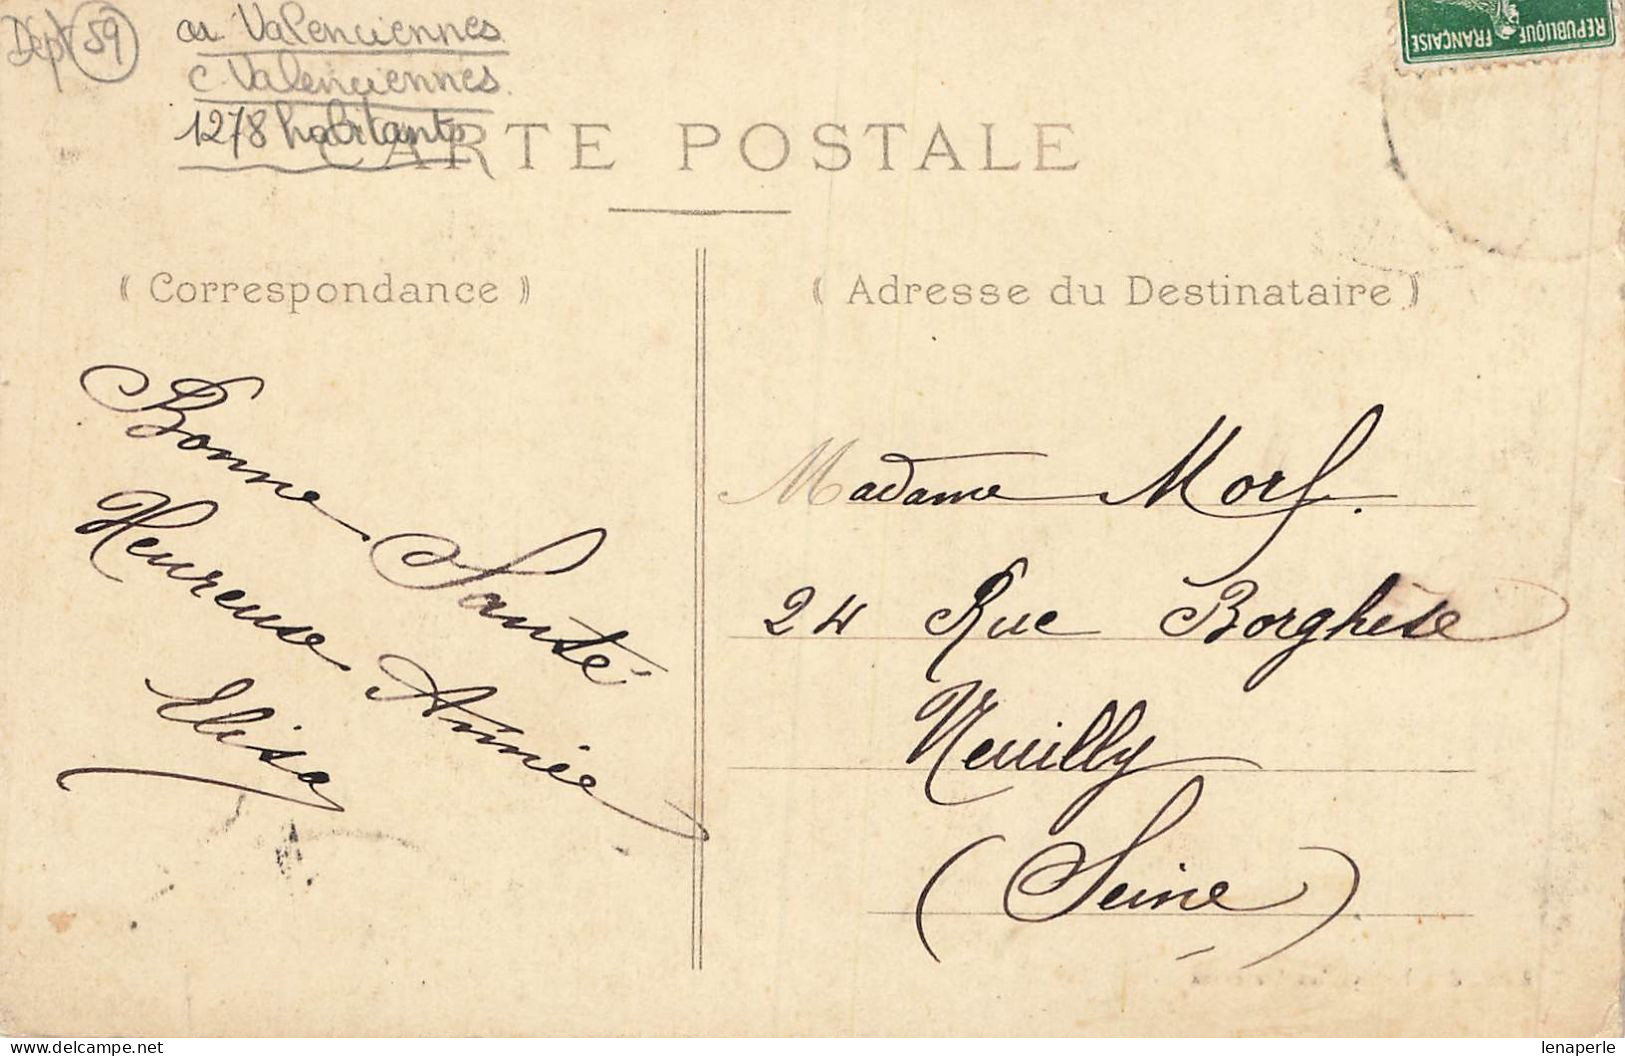 Dépt 59
ar Valenciennes
c. Valenciennes.
1278 habitants
REPUBLIQUE FRANÇAISE
CARTE POSTALE
( Correspondance )
( Adresse du Destinataire )
Bonne Santé
Heureuse Année
Elisa
Madame Morf.
24 Rue Borghèse
Neuilly
(Seine)
delcampe.net
lenaperle